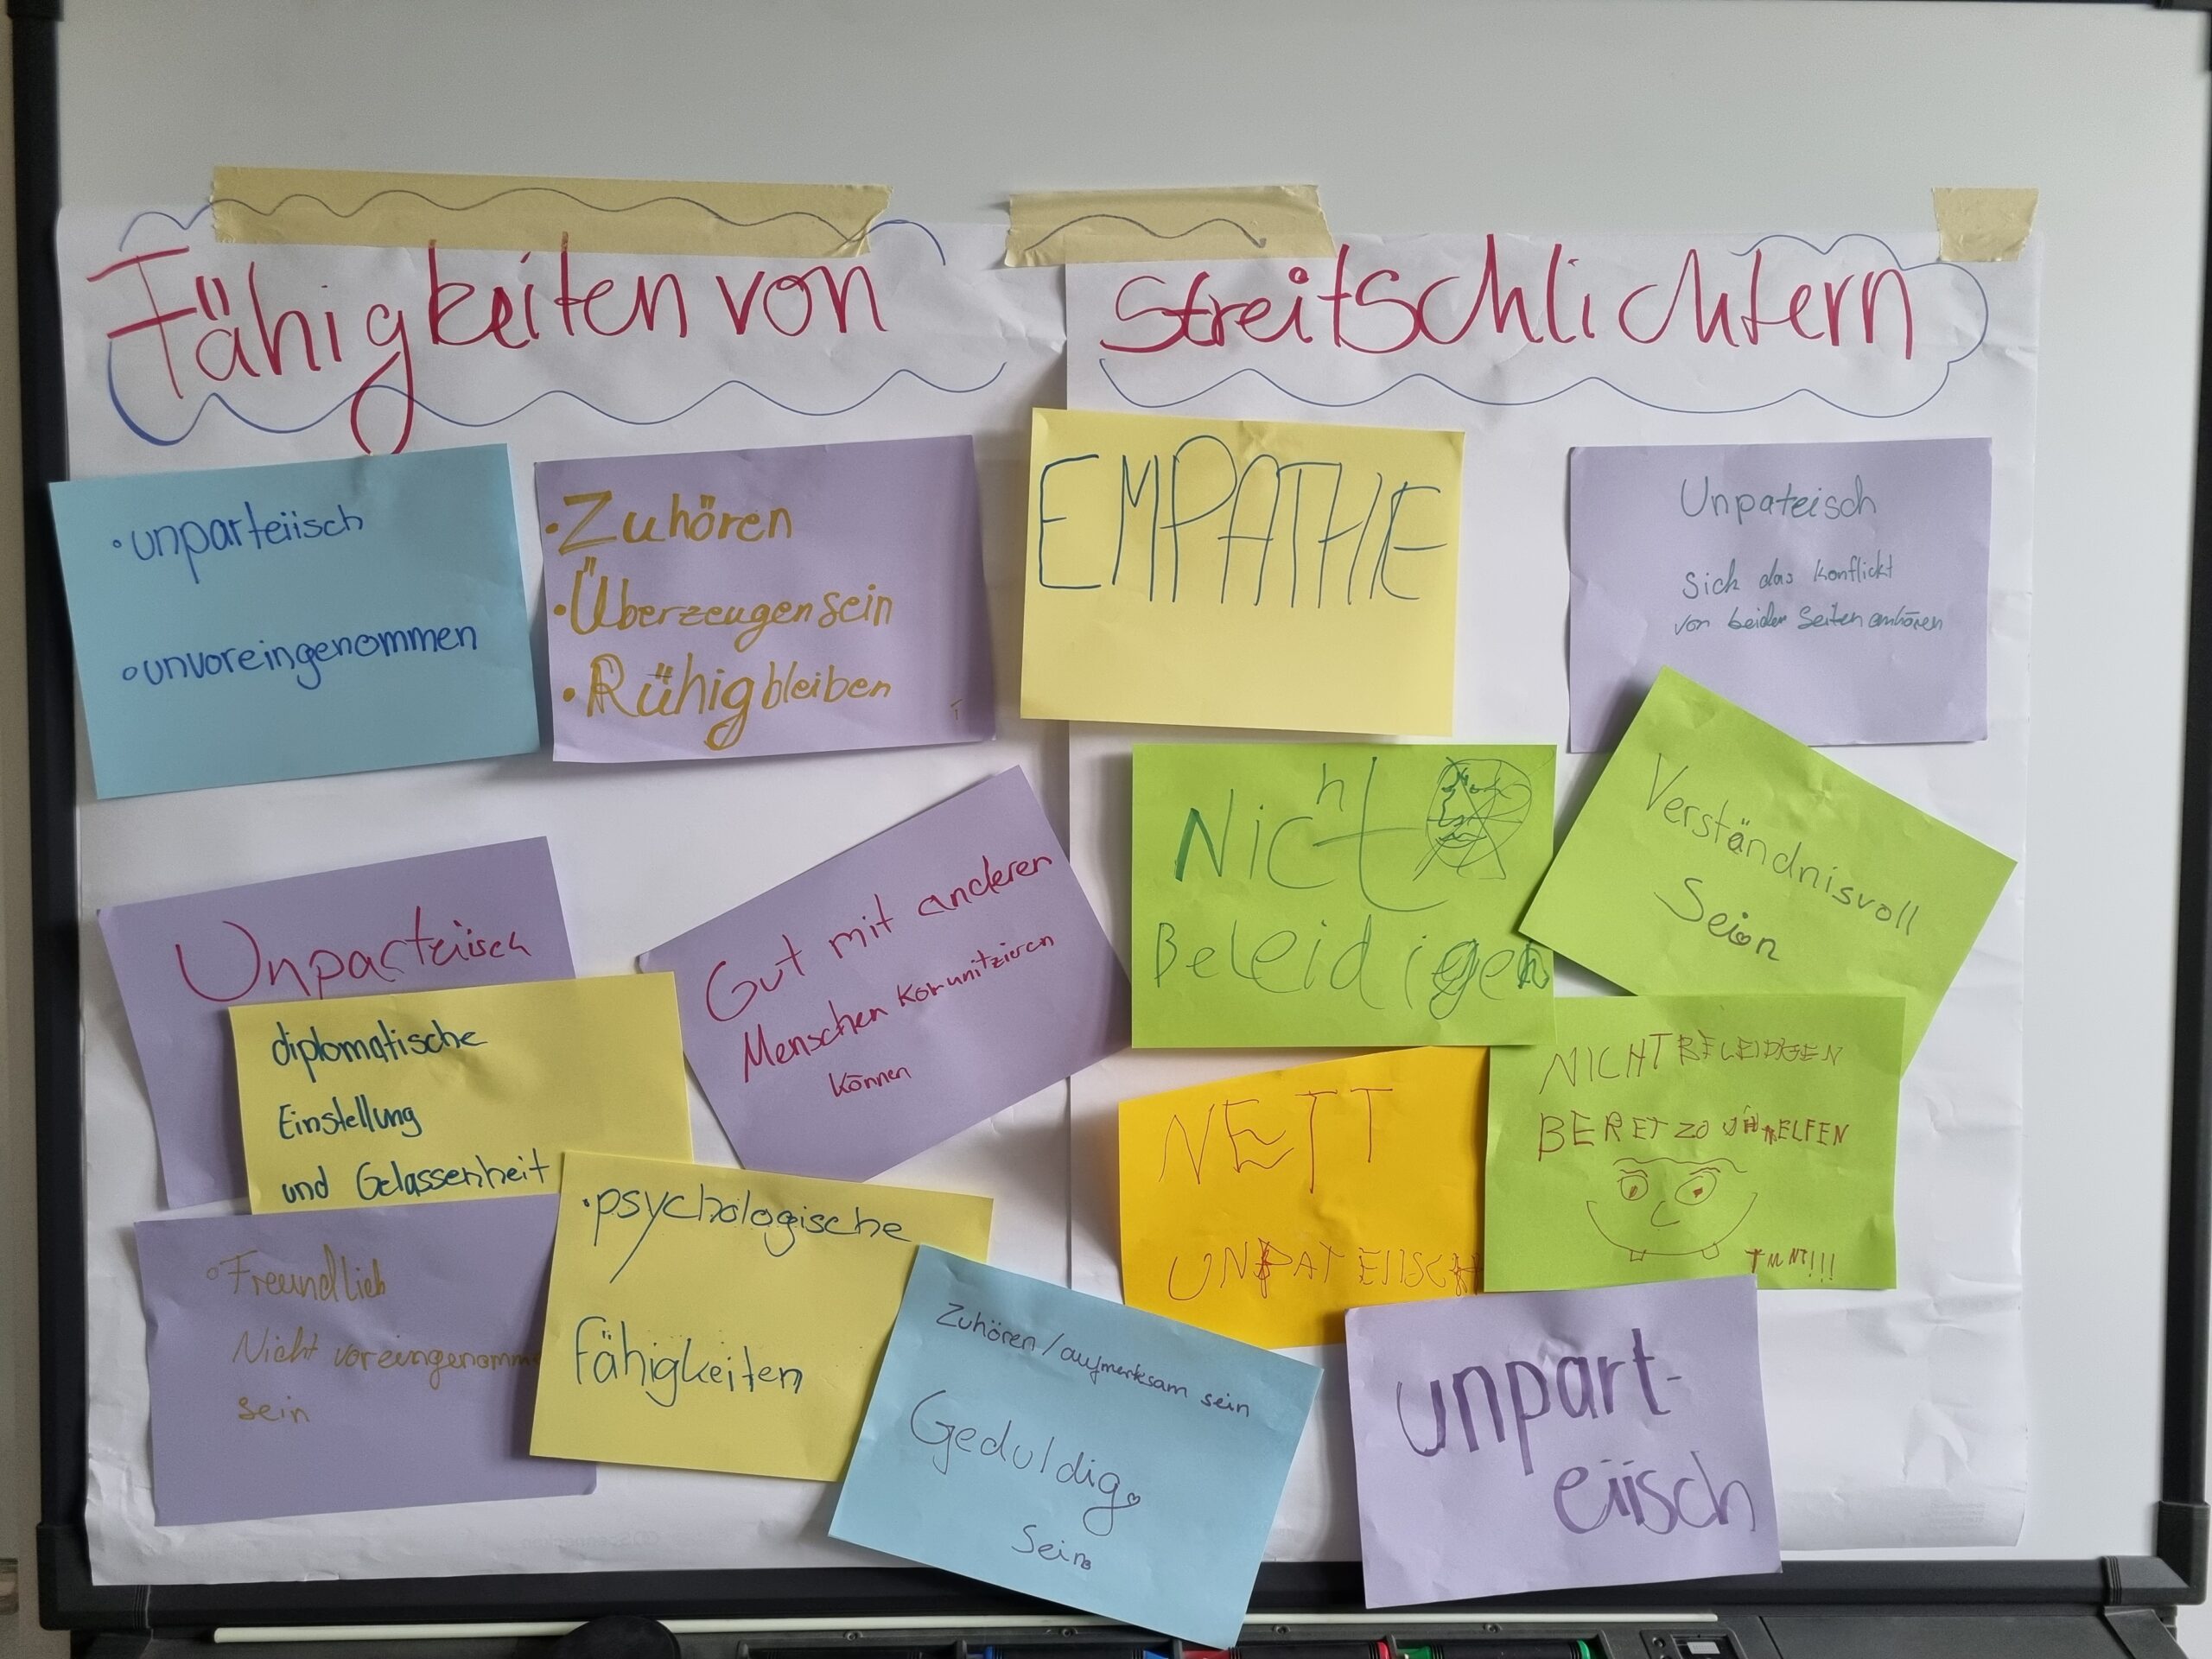 Fähigkeiten von Streitschlichtern
• unparteiisch
• unvoreingenommen
• Zuhören
• Überzeugen sein
• Rühig bleiben
EMPATHIE
Unpateisch
Sich das Konflickt
von beiden Seiten anhören
Nicht
Beleidigen
Verständnisvoll
Sein
Unparteiisch
diplomatische
Einstellung
und Gelassenheit
Gut mit anderen
Menschen Komunitzieren
können
NETT
UNPATEIISCH
NICHT BELEIDIGEN
BERET ZO HELFEN
• Freundlich
Nicht voreingenomm
sein
• psychologische
Fähigkeiten
Zuhören / aufmerksam sein
Geduldig
Sein
unpart-
eiisch